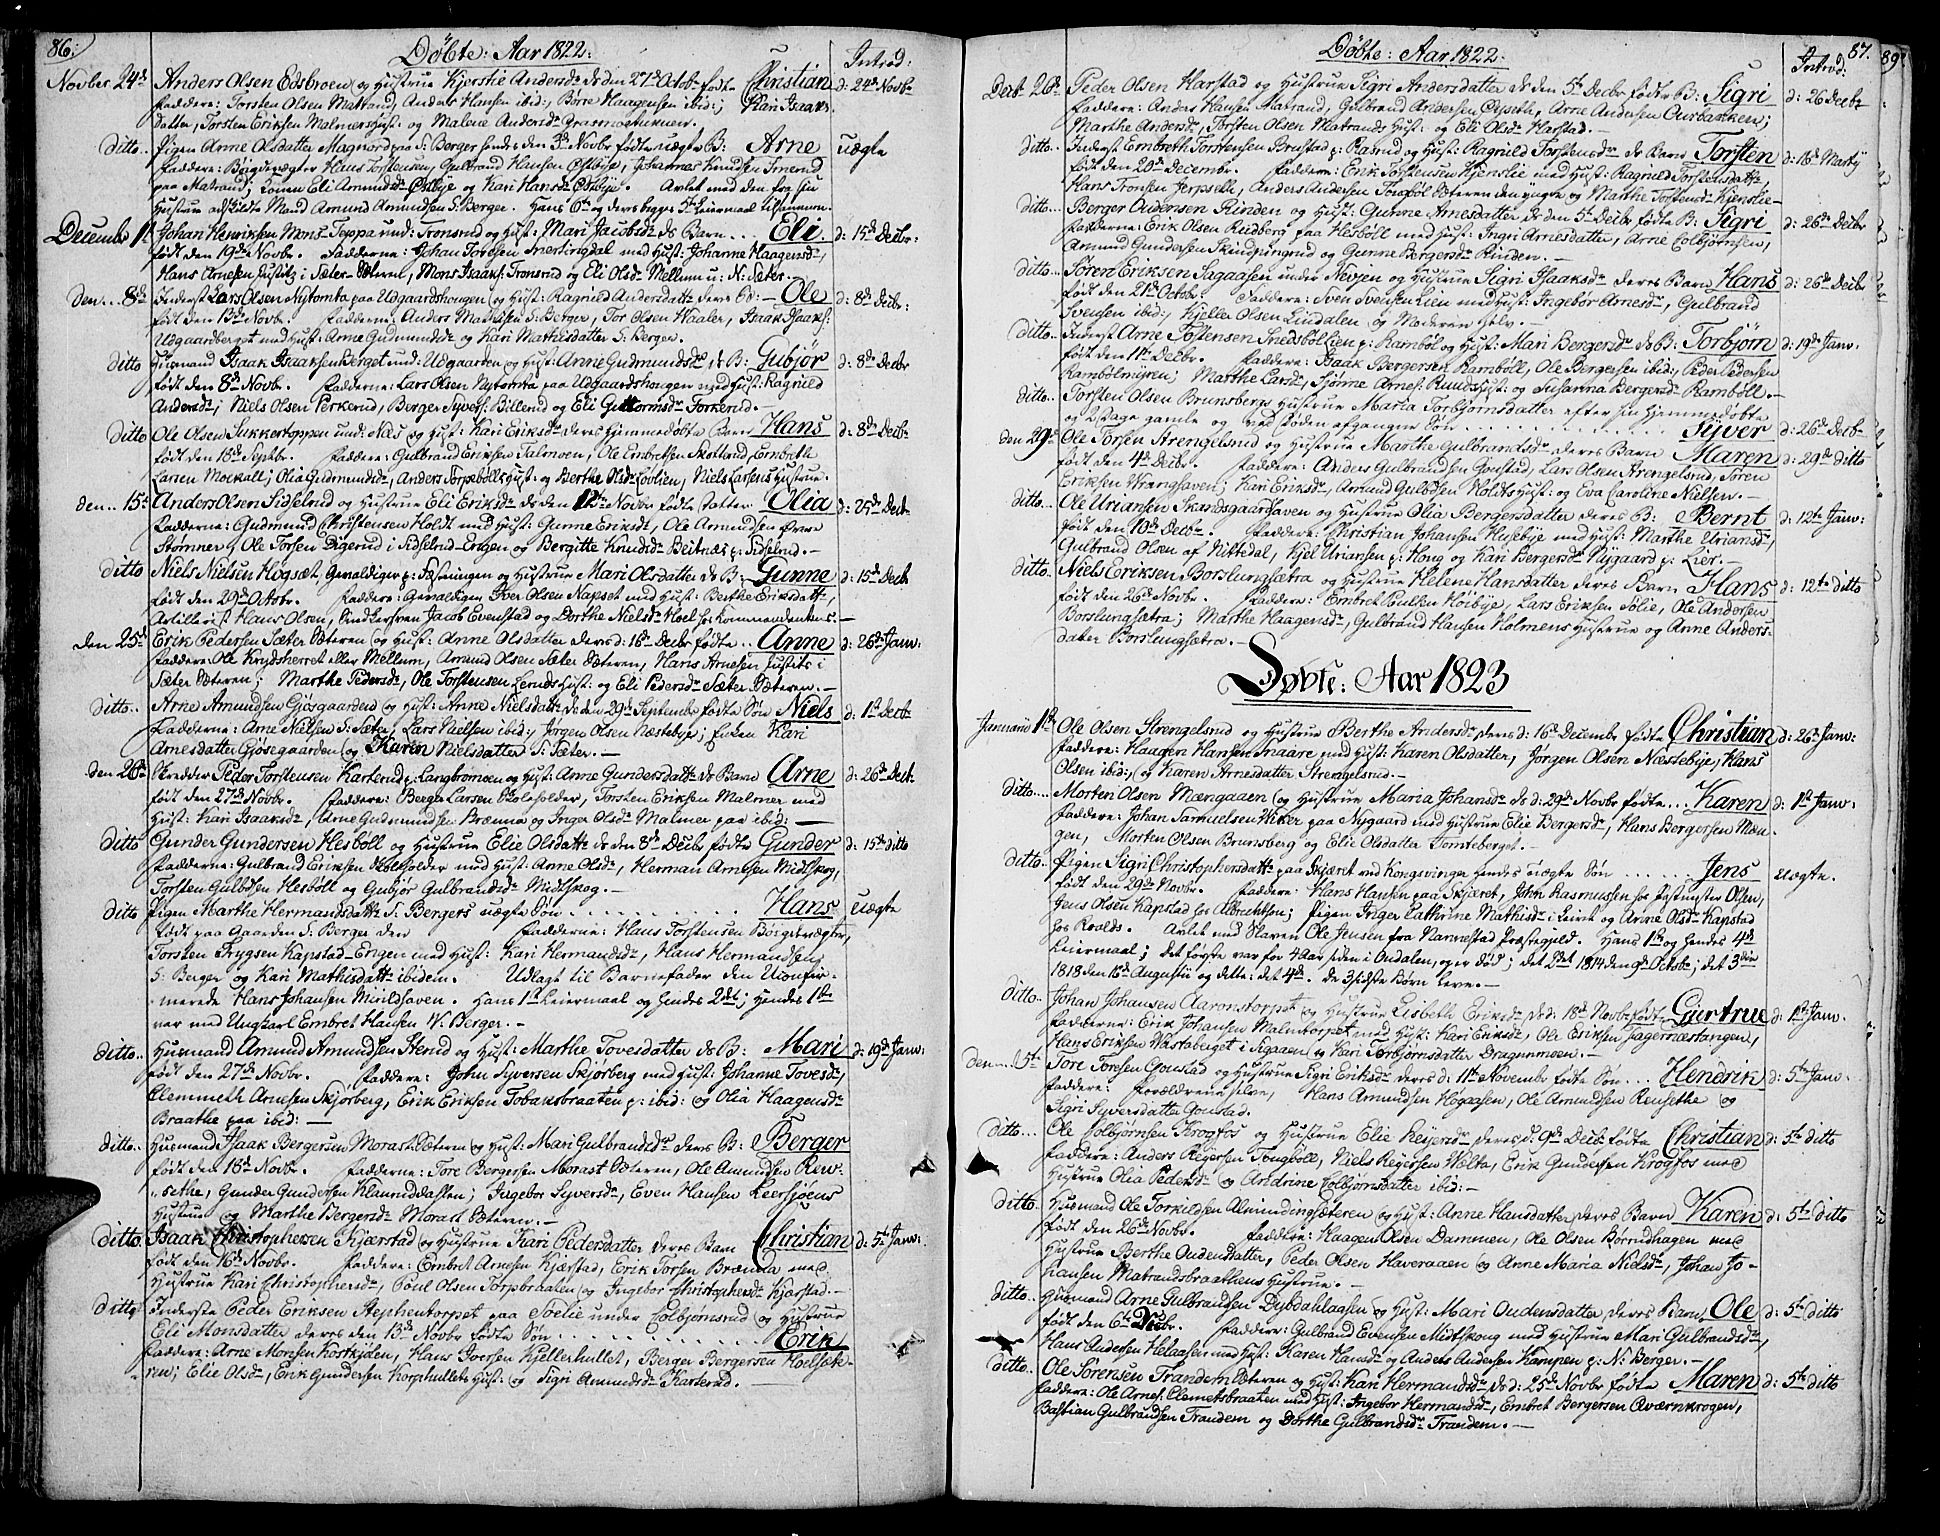 86.
Döbte: Aar 1822.
Introd:
Novber 24de Anders Olsen Edsbroen og Hustrue Kjerstie Andersdr ds den 27de Octob. fødte Christian d: 24de Novbr
Faddere: Torsten Olsen Matrand, Anders Hansen ibid:, Børre Haagensen ibid:; Kari Isaaks-
datter, Torsten Eriksen Malmers Hust: og Malene Andersdr Grasmogtunet.
ditto.. Pigen Anne Olsdatter Magnord paa S: Berger hendes den 3de Novbr fødte uægte B: Arne uægte
Faddere: Bøigdevægter Hans Torstensen, Gulbrand Hansen Østbye, Johannes Knudsen
paa Matrand; Konen Eli Amundsdr Østbye og Kari Hansdr Østbye. Avlet med den fra sin
Hustrue adskildte Mand Amund Amundsen S: Berger. Hans 6te og deres begges 5te Leiermaal tilsammen.
Decembr 1te Johan Henriksen Mons-Teppa und: Tronsrud og Hust: Mari Jacobsdr ds Barn... Eli d: 15de Decbr:
født den 19de Novbr. Faddere: Johan Toresen Snertingdal med Hust: Johanne Haagensdr,
Hans Arnesen Justitz i Sæter-Sæteren, Mons Isaaks: Tronsrud og Eli Olsdr Mellum u: N: Sæter.
den... 8de Inderst Lars Olsen Nytomta paa Udgaardshougen og Hust: Ragnild Andersdattr deres B: Ole d: 8de Decbr:
født den 13de Novbr. Faddere: Anders Madissen S: Berger, Tor Olsen Waaler, Isaak Isaaks:
Udgaardberget med Hust: Anne Gudmundsdr og Kari Mathisdatter S: Berger.
ditto Husmand Isaak Isaaksen Berget und: Udgaarden og Hust: Anne Gudmundsdr ds B: Gubjør d: 8de Decbr
født den 8de Novbr. Fadderne: Lars Olsen Nytomta paa Udgaardshougen med Hust: Ragnild
Andersdr, Niels Olsen Perkerud, Berger Syvers: Billerud og Eli Guttormsdr Torkerud.
ditto Ole Olsen Sukkertoppen und: Næs og Hust: Kari Eriksdr deres hjemmedøbte Barn Hans d: 8de Decbr
født den 18de Septbr. Faddere: Gulbrand Eriksen Salmoen, Ole Embretsen Skotterud, Embreth
Larsen Mockall, Olia Gudmundsdr, Anders Torpebölls Hust: og Berthe Olsdr Lövlien, Niels Larsens Hustrue.
den.. 15de Anders Olsen Sidselrud og Hustrue Eli Eriksdr ds den 12te Novbr fødte Datter Olia d: 25de Decbr
Fadderne: Gudmund Christensen Holdt med Hust: Gunne Eriksdr, Ole Amundsen Øvre
Stømner, Ole Torsen Digerud i Sidselrud-Engen og Bergitte Knudsdr Beitnæs p: Sidselrud.
ditto Niels Nielsen Høgsæt, Gevaldiger p: Fæstningen og Hustrue Mari Olsdatter ds B: Gunne d: 15de Decbr
født den 29de Octobr. Faddere: Gevaldigen Iver Olsen Napset med Hust: Berthe Eriksdatt,
Artillerist Hans Olsen, Jomfrue Jacob Evenstad og Dorthe Nielsdr Hoel hos Kommandanten.
den 25de Erik Pedersen Sæter Sæteren og Hust: Anne Olsdatter deres d: 16de Decbr fødte .. Anne d: 26de Janv:
Faddere: Ole Krydsherret eller Mellum, Amund Olsen Sæter Sæteren, Hans Arnesen Justits i
Sæter Sæteren; Marthe Pedersdr, Ole Torstensen Leruds Hust: og Eli Pedersdr Sæter Sæteren.
ditto.. Arne Amundsen Gjøsgaarden og Hust: Anne Nielsdattr ds den 29de Septembr fødte Søn Niels d: 1te Decbr
Fadderne: Arne Nielsen S: Sæter, Lars Nielsen ibid:, Jørgen Olsen Næstebye; Enken Kari
Arnesdatter Gjösegaarden og Karen Nielsdatter S: Sæter.
den 26de Skredder Peder Torstensen Karterud p: Langbromoen og Hust: Anne Gundersdattr ds Barn Arne d: 26de Decbr
født den 27de Novbr. Faddere: Berger Larsen Skoleholder, Torsten Eriksen Malmer med
Hust: Kari Isaaksdr, Arne Gudmundsen Brænna og Inger Olsdr Malmer paa ibid:
ditto Gunder Gundersen Hesböll og Hustrue Elie Olsdattr ds den 8de Decbr fødte Gunder d: 15de ditto
Fadderne: Gulbrand Eriksen Skoleholder med Hust: Anne Olsdr, Herman Arnesen Midtskog,
Torsten Gulbdsen Hesböll og Gubjør Gulbrandsdr Midtskog.
ditto Pigen Marthe Hermandsdattr S: Bergers uægte Søn . . . . Hans uægte
født paa Gaarden S: Berger den Fadderne: Hans Torstensen Bøigdevægter,
Torsten Trygsen Kapstad-Engen med Hust: Kari Hermandsdr, Hans Hermandsen
S: Berger og Kari Mathisdattr ibidem. Udlagt til Barnefader den Uconfir-
merede Hans Johansen Minildhaven. Hans 1te Leiermaal og hendes 2det; hendes 1te
var med Ungkarl Embret Hansen W: Berger.
ditto.. Husmand Amund Amundsen Herud og Hust: Marthe Tovesdatter ds B: Mari d: 19de Janv:
født den 27de Novbr. Faddere: John Syversen Skjørberg med Hust: Johanne Tovesdr,
Clemmeth Arnesen Skjørberg, Erik Eriksen Tobaksbraaten p: ibid: og Olia Haagensdr
Braathe paa ibid:
ditto. Husmand Isaak Bergersen Morast Sæteren og Hust: Mari Gulbrandsdr deres B: Berger
født den 18de Novbr. Fadderne: Tore Bergersen Morast Sæteren, Ole Amundsen Rew-
sethe, Gunder Gundersen Klanniddalten; Ingebor Syversdr, Even Hansen Leersjøens
Hustrue og Marthe Bergersdr Morast Sæteren.
ditto. Isaak Christophersen Kjærstad og Hustrue Kari Pedersdatter deres Barn Christian d: 5te Janv:
født den 16de Novbr. Faddere: Embret Arnesen Kjærstad, Erik Torsen Brænna med
Hustrue Kari Christophersdr, Poul Olsen Torpbraaten og Ingebor Christophersdr Kjærstad.
ditto Inderste Peder Eriksen Stephentorpet paa Svelie under Colbjørnsrud og Hustrue
Eli Monsdatter deres den 13de Novbr fødte Søn . . . . Erik
Faddere: Arne Monsen Kostkjølen, Hans Iversen Kjellerhullet, Berger Bergersen Hoelsæte-
ren; Elie Olsdr, Erik Gundersen Korphullets Hust: og Sigri Amundsdr Karterud.
87.
Döbte: Aar 1822.
Introd:
89
Decbr 26de Peder Olsen Harstad og Hustrue Sigri Andersdatter ds den 5te Decbr fødte B: Sigri d: 26 Decbr
Faddere: Anders Hansen Matrand, Gulbrand Andersen Øyseth, Arne Andersen Aurbakken;
Marthe Andersdr, Torsten Olsen Matrands Hust: og Eli Olsdr Harstad.
ditto. Inderst Embreth Torstensen Brustad p: Rasrud og Hust: Ragnild Torstensdr ds Barn Torsten d: 16de Martij
født den 20de Decembr. Faddere: Erik Torstensen Kjenslie med Hust: Ragnild Torstensdattr
Hans Tronsen Jerpsell, Anders Andersen Torpböl Sæteren den yngre og Marthe Torstensdr Kjenslie
ditto... Berger Oudensen Rinden og Hust: Gunne Arnesdatter ds den 5te Decbr fødte B: Sigri d: 26de Decbr
Fadderne: Erik Olsen Rudberg paa Hesböll med Hust: Ingri Arnesdatter, Arne Colbjørnsen,
Amund Gundersen Skindpungrud og Gunne Bergersdr Rinden.
ditto.. Sören Eriksen Sagaasen under Nevjen og Hustrue Sigri Isaaksdr deres Barn Hans d: 26de Decbr
født den 21de Octobr. Faddere: Sven Svensen Lien med Hust: Ingebor Arnesdr, Gulbrand
Svensen ibid:, Kjeller Olsen Lindalen og Moderen selv.
ditto.. Inderst Arne Tostensen Snedsbölien p: Ramböl og Hust: Mari Bergersdr ds B: Torbjørn d: 19de Janv:
født den 11te Decbr. Faddere: Isaak Bergersen Ramböll, Ole Bergersen ibid:, Peder Pedersen
Rambölmyren; Marthe Larsdr, Sjønne Arnes: Ruuds Hust: og Susanna Bergersdr Ramböll.
ditto.. Torsten Olsen Brunsbergs Hustrue Maria Torbjørnsdatter efter sin hjemmedøbte
og 2 Dage gamle og ved Døden afgangne Søn . . . . Syver d: 26de Decbr
den 29de Ole Torsen Strengelsrud og Hustrue Marthe Gulbrandsdr deres Barn Maren d: 29de ditto
født den 4de Decbr. Faddere: Anders Gulbrandsen Gonstad, Lars Olsen Strengelsrud, Sören
Eriksen Vranghaven; Kari Eriksdr, Amund Gulbdsen Holdts Hust: og Eva Caroline Nielsen.
ditto.. Ole Uriansen Skandsgaardhaven og Hustrue Olia Bergersdatter deres B: Bernt d: 12te Janv:
født den 10de Decbr. Faddere: Christian Johansen Husebye med Hust: Marthe Uriansdr,
Gulbrand Olsen af Nittedal, Kjel Uriansen p: Houg og Kari Bergersdr Nygaard p: Lier.
ditto. Niels Eriksen Borslungsætra og Hustrue Helene Hansdatter deres Barn Hans d: 12te ditto
født den 26de Novbr. Faddere: Embret Poulsen Høibye, Lars Eriksen Solie, Ole Andersen
Borslungsætra; Marthe Haagensdr, Gulbrand Hansen Holmens Hustrue og Anne Anders-
datter Borslungsætra.
Døbte: Aar 1823
Januarii 1te Ole Olsen Strengelsrud og Hustrue Berthe Andersdr deres d: 16de Decembr fødte Christian d: 26de Janv:
Faddere: Haagen Hansen Snaare med Hust: Karen Olsdatter, Jørgen Olsen Næstebye, Hans
Olsen ibid:, og Karen Arnesdatter Strengelsrud.
ditto... Morten Olsen Mængaaen og Hustrue Maria Johansdr ds d: 29de Novbr fødte... Karen d: 1te Janv:
Faddere: Johan Samuelsen Wiker paa Nygaard med Hustrue Elie Bergersdr, Hans Bergersen Mæn-
gen, Morten Olsen Brunsberg og Elie Olsdatter Domteberget.
ditto.. Pigen Sigri Christophersdattr paa Skjæret ved Kongsvinger hendes uægte Søn . . . Jens uægte.
født den 29de Novbr. Faddere: Hans Hansen paa Skjæret, John Rasmussen hos Postmester Olsen,
Jens Olsen Kapstad hos Albrechtson; Pigen Inger Cathrine Mathisdr i Leiret og Anne Olsdr Kapstad
hos Roalds. Avlet med Slaven Ole Jensen fra Nannestad Præstegjeld. Hans 1te og hendes 4de
Leiermaal; det første var for 4 Aar siden i Oudalen, og er död; det 2det 1814 den 9de Octobr; det 3die
1818 den 16de Augustii og dette: det 4de. De 3 sidste Børn leve.
ditto. Johan Johansen Aaronstorpet og Hustrue Lisbeth Eriksdr ds d: 18de Novbr fødte Gjertrue d: 1te Janv:
Fadderne: Erik Johansen Malmtorpet med Hust: Kari Eriksdr, Ole Eriksen Fagernæstangen,
Hans Eriksen Wastaberget i Sigaaen og Kari Torbjørnsdatter Dragonmoen.
den... 5te Tore Toresen Gonstad og Hustrue Sigri Eriksdr deres d: 11te Novembr fødte Søn... Hendrik d: 5te Janv.
Faddere: Forældrene selve, Hans Amundsen Høgaasen, Ole Amundsen Reusethe og
Sigri Syversdatter Gonstad.
ditto... Ole Colbjørnsen Krogfos og Hustrue Elie Reyersdr deres d: 9de Decbr fødte Christian d: 5te ditto
Faddere: Anders Reyersen Tongböll, Niels Reyersen Wælta, Erik Gundersen Krogfos med
Hustrue Olia Pedersdr og Andrine Colbjørnsdatter ibid:
ditto. Husmand Ole Torkildsen Almindingsæteren og Hust: Anne Hansdatter deres Barn Karen d: 5te ditto
født den 26de Novbr. Faddere: Haagen Olsen Dammen, Ole Olsen Børrudhagen med
Hustrue Berthe Oudensdatter, Peder Olsen Haveraaen og Anne Maria Nielsdr, Johan Jo-
hansen Matrandsbraathens Hustrue.
ditto.. Husmand Arne Gulbrandsen Dybdahlaasen og Hust: Mari Oudensdatter deres Barn Ole d: 5te ditto
født den 6te Decbr. Faddere: Gulbrand Evensen Midtskoug med Hustrue Mari Gulbrandsdr,
Hans Andersen Helaasen med Hust: Karen Hansdr og Anders Andersen Kampen p: N: Berger.
ditto. Ole Sørensen Trandem Sæteren og Hust: Kari Hermandsdr ds d: 25de Novbr fødte Maren d: 5te ditto
Faddere: Ole Arnes: Clemetsbraaten med Hust: Ingebor Hermandsdr, Embret Bergersen Qværnkrogen,
Bastian Gulbrandsen Trandem og Dorthe Gulbrandsdr Trandem.